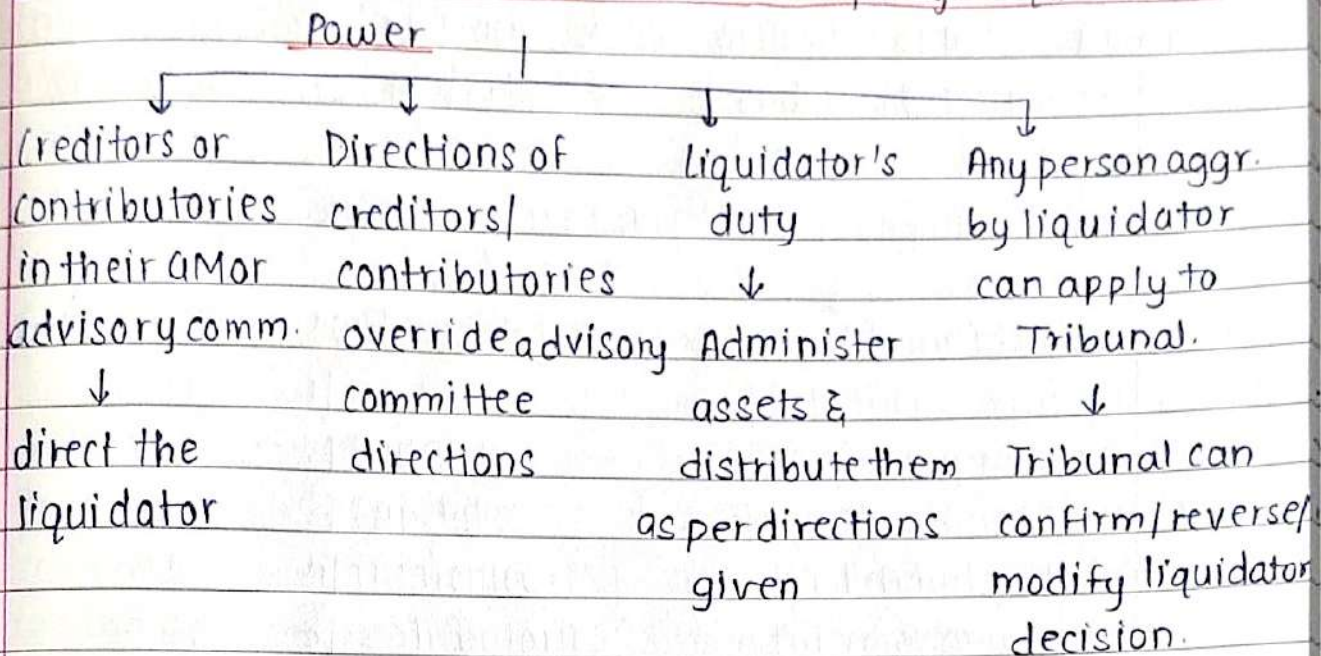 Power
Creditors or
contributories
in their GM or
advisory comm.
↓
direct the
liquidator
Directions of
creditors/
contributories
override advisory
committee
directions
Liquidator's
duty
↓
Administer
assets &
distribute them
as per directions
given
Any person aggr.
by liquidator
can apply to
Tribunal.
↓
Tribunal can
confirm/reverse/
modify liquidator
decision.